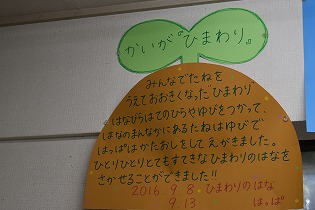 かいが『ひまわり』
みんなでたねを
うえておおきくなったひまわり
はなびらはてのひらやゆびをつかって、
はなのまんなかにあるたねはゆびで
はっぱはかたおしをしてえがきました。
ひとりひとりとてもすてきなひまわりのはなを
さかせることができました!!
2016 9 8 ひまわりのはな
9.13 はっぱ